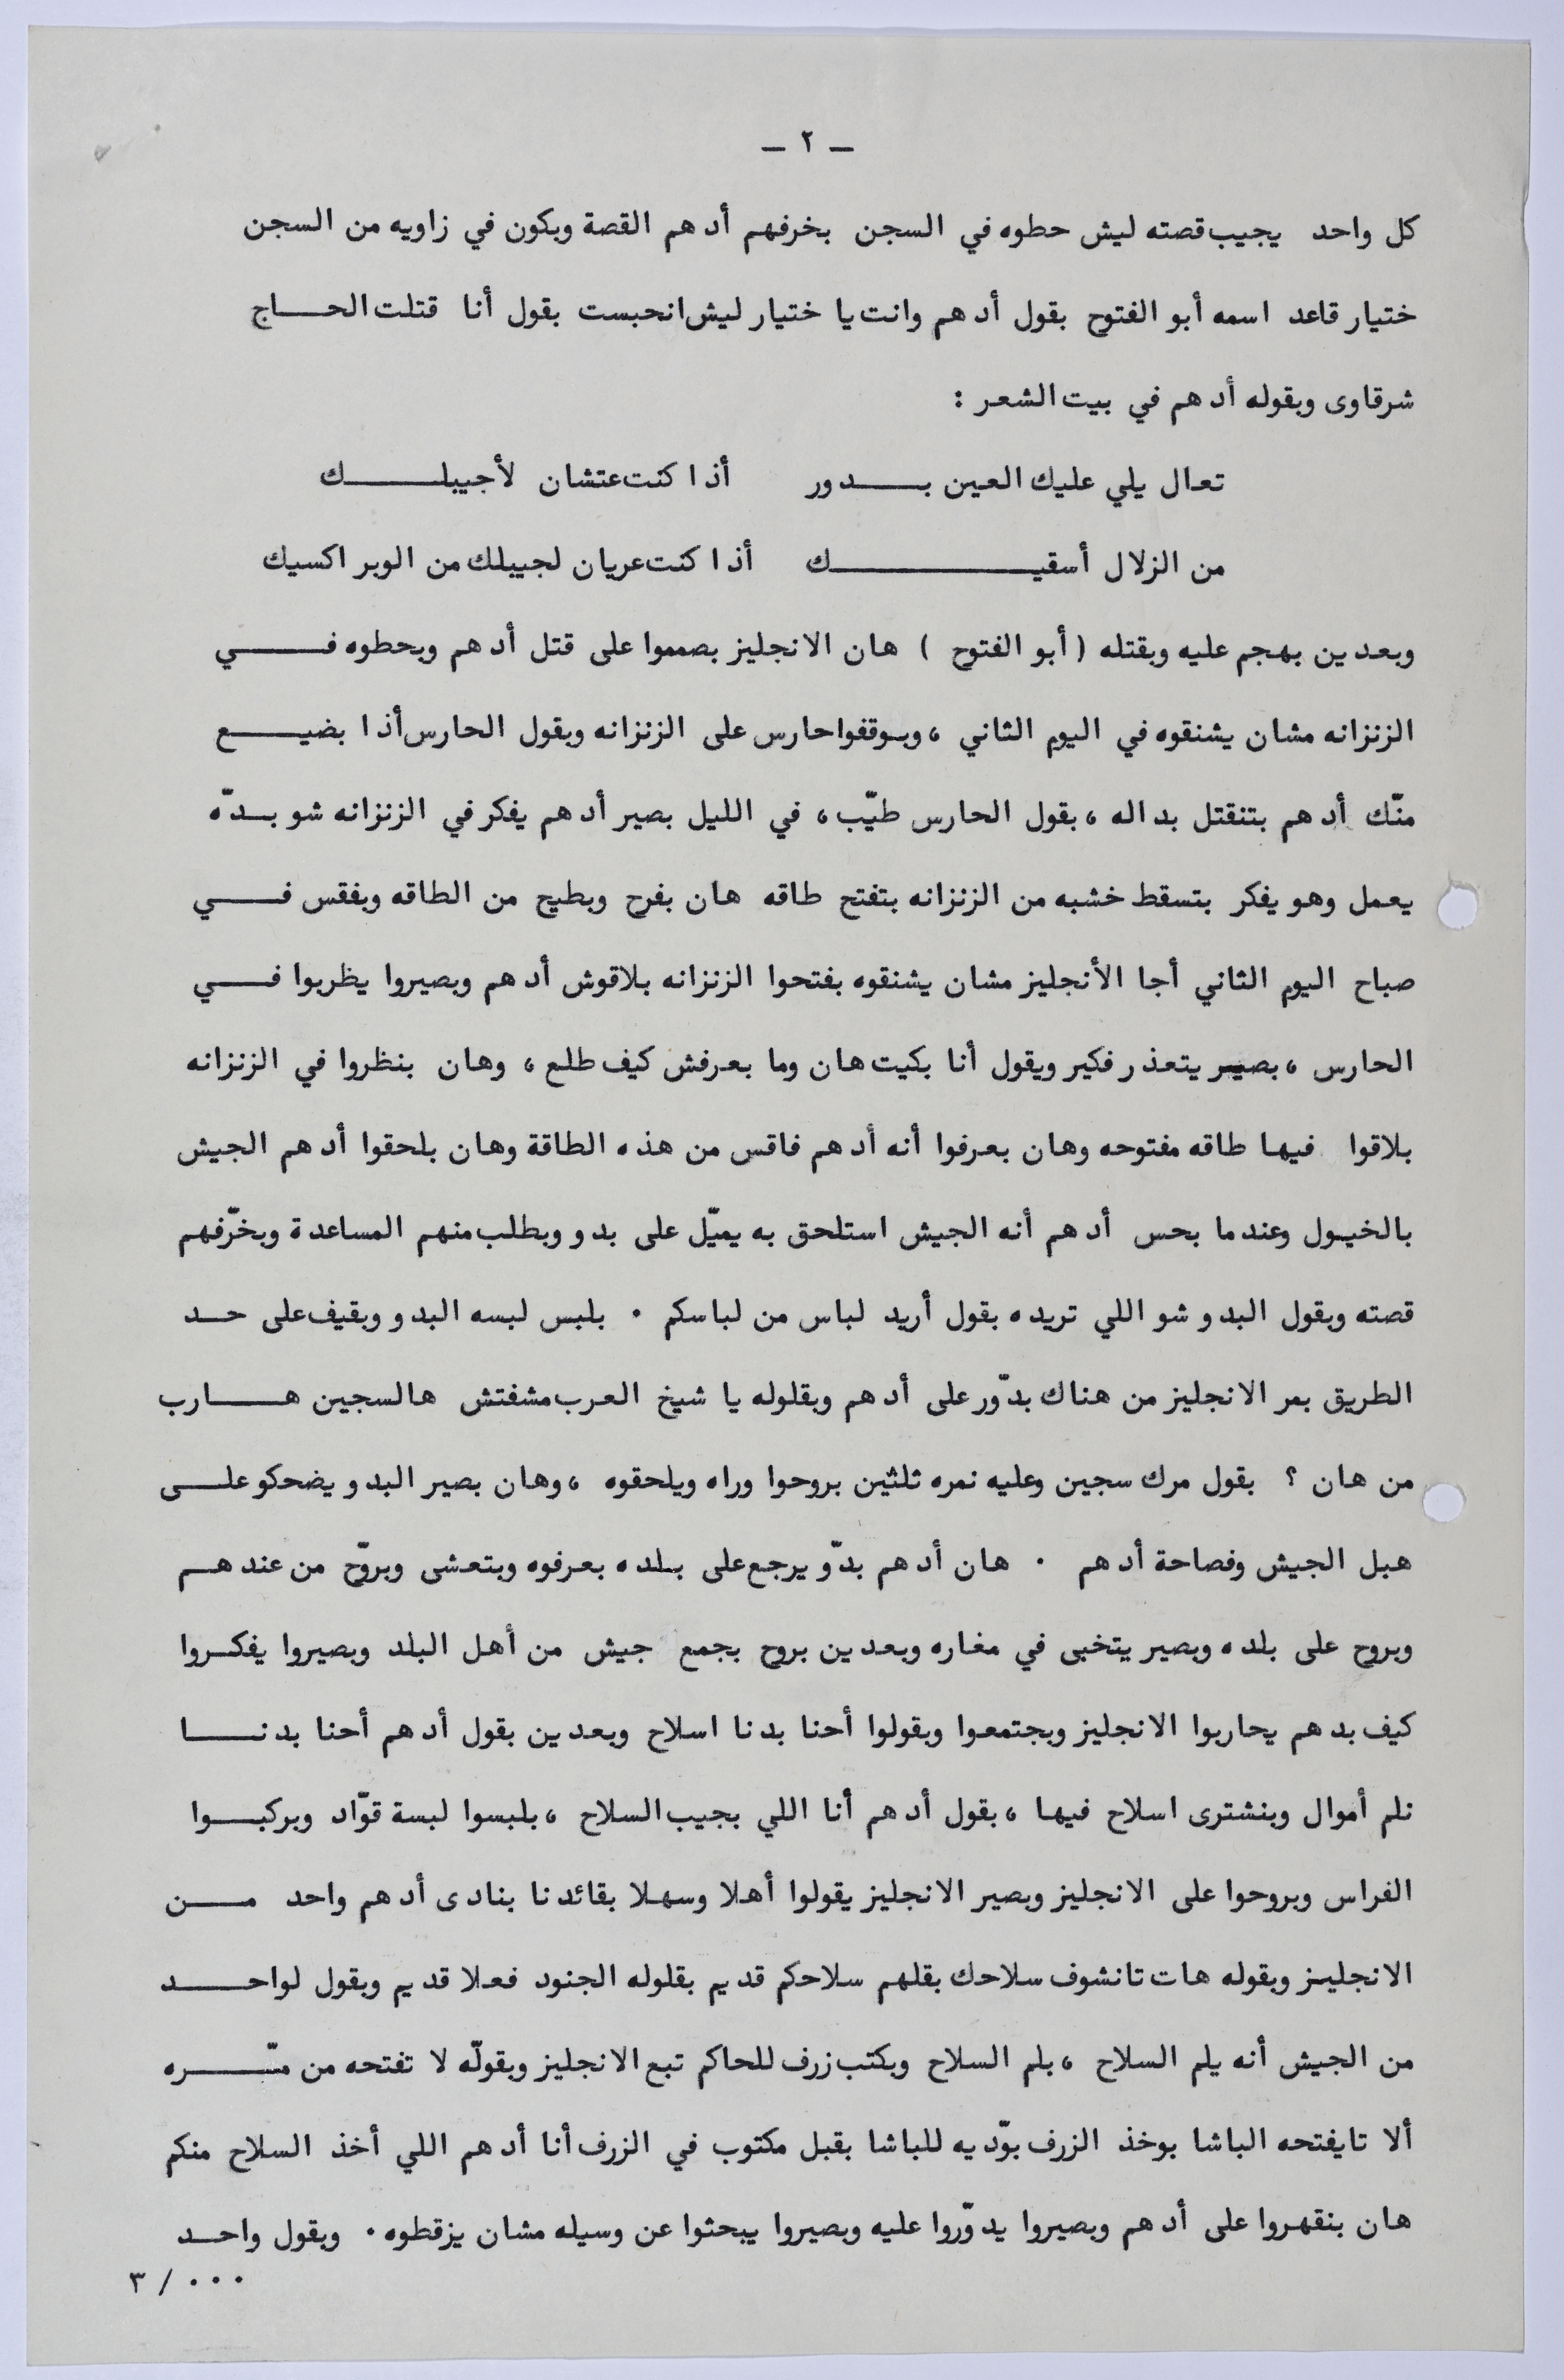 – ٢ –
كل واحد يجيب قصته ليش حطوه في السجن بخرفهم أدهم القصة وبكون في زاويه من السجن
ختيار قاعد اسمه أبو الفتوح بقول أدهم وانت يا ختيار ليش انحبست بقول أنا قتلت الحاج
شرقاوى وبقوله أدهم في بيت الشعر :
تعال يلي عليك العين بدور أذا كنت عتشان لأجيبلك
من الزلال أسقيك أذا كنت عريان لجيبلك من الوبر اكسيك
وبعدين بهجم عليه وبقتله ( أبو الفتوح ) هان الانجليز بصمموا على قتل أدهم وبحطوه في
الزنزانه مشان يشنقوه في اليوم الثاني ، وبوقفوا حارس على الزنزانه وبقول الحارس أذا بضيع
منّك أدهم بتنقتل بداله ، بقول الحارس طيّب ، في الليل بصير أدهم يفكر في الزنزانه شو بدّه
يعمل وهو يفكر بتسقط خشبه من الزنزانه بتفتح طاقه هان بفرح وبطيح من الطاقه وبفقس في
صباح اليوم الثاني أجا الأنجليز مشان يشنقوه بفتحوا الزنزانه بلاقوش أدهم وبصيروا يظربوا في
الحارس ، بصير يتعذر فكير ويقول أنا بكيت هان وما بعرفش كيف طلع ، وهان بنظروا في الزنزانه
بلاقوا فيها طاقه مفتوحه وهان بعرفوا أنه أدهم فاقس من هذه الطاقة وهان بلحقوا أدهم الجيش
بالخيول وعندما بحس أدهم أنه الجيش استلحق به يميّل على بدو وبطلب منهم المساعدة وبخّرفهم
قصته وبقول البدو شو اللي تريده بقول أريد لباس من لباسكم . بلبس لبسه البدو وبقيف على حد
الطريق بمر الانجليز من هناك بدّور على أدهم وبقلوله يا شيخ العرب مشفتش هالسجين هارب
من هان ؟ بقول مرك سجين وعليه نمره ثلثين بروحوا وراه ويلحقوه ، وهان بصير البدو يضحكو على
هبل الجيش وفصاحة أدهم . هان أدهم بدّو يرجع على بلده بعرفوه وبتعشى وبروّح من عندهم
وبروح على بلده وبصير يتخبى في مغاره وبعدين بروح بجمع جيش من أهل البلد وبصيروا يفكروا
كيف بدهم يحاربوا الانجليز وبجتمعوا وبقولوا أحنا بدنا اسلاح وبعدين بقول أدهم أحنا بدنا
نلم أموال وبنشترى اسلاح فيها ، بقول أدهم أنا اللي بجيب السلاح ، بلبسوا لبسة قوّاد وبركبوا
الفراس وبروحوا على الانجليز وبصير الانجليز يقولوا أهلا وسهلا بقائدنا بنادى أدهم واحد من
الانجليز وبقوله هات تانشوف سلاحك بقلهم سلاحكم قديم بقلوله الجنود فعلا قديم وبقول لواحد
من الجيش أنه يلم السلاح ، بلم السلاح وبكتب زرف للحاكم تبع الانجليز وبقولّه لا تفتحه من مّره
ألا تايفتحه الباشا بوخذ الزرف بوّديه للباشا بقبل مكتوب في الزرف أنا أدهم اللي أخذ السلاح منكم
هان بنقهروا على أدهم وبصيروا يدوّروا عليه وبصيروا يبحثوا عن وسيله مشان يزقطوه . وبقول واحد
٣ / ٠٠٠